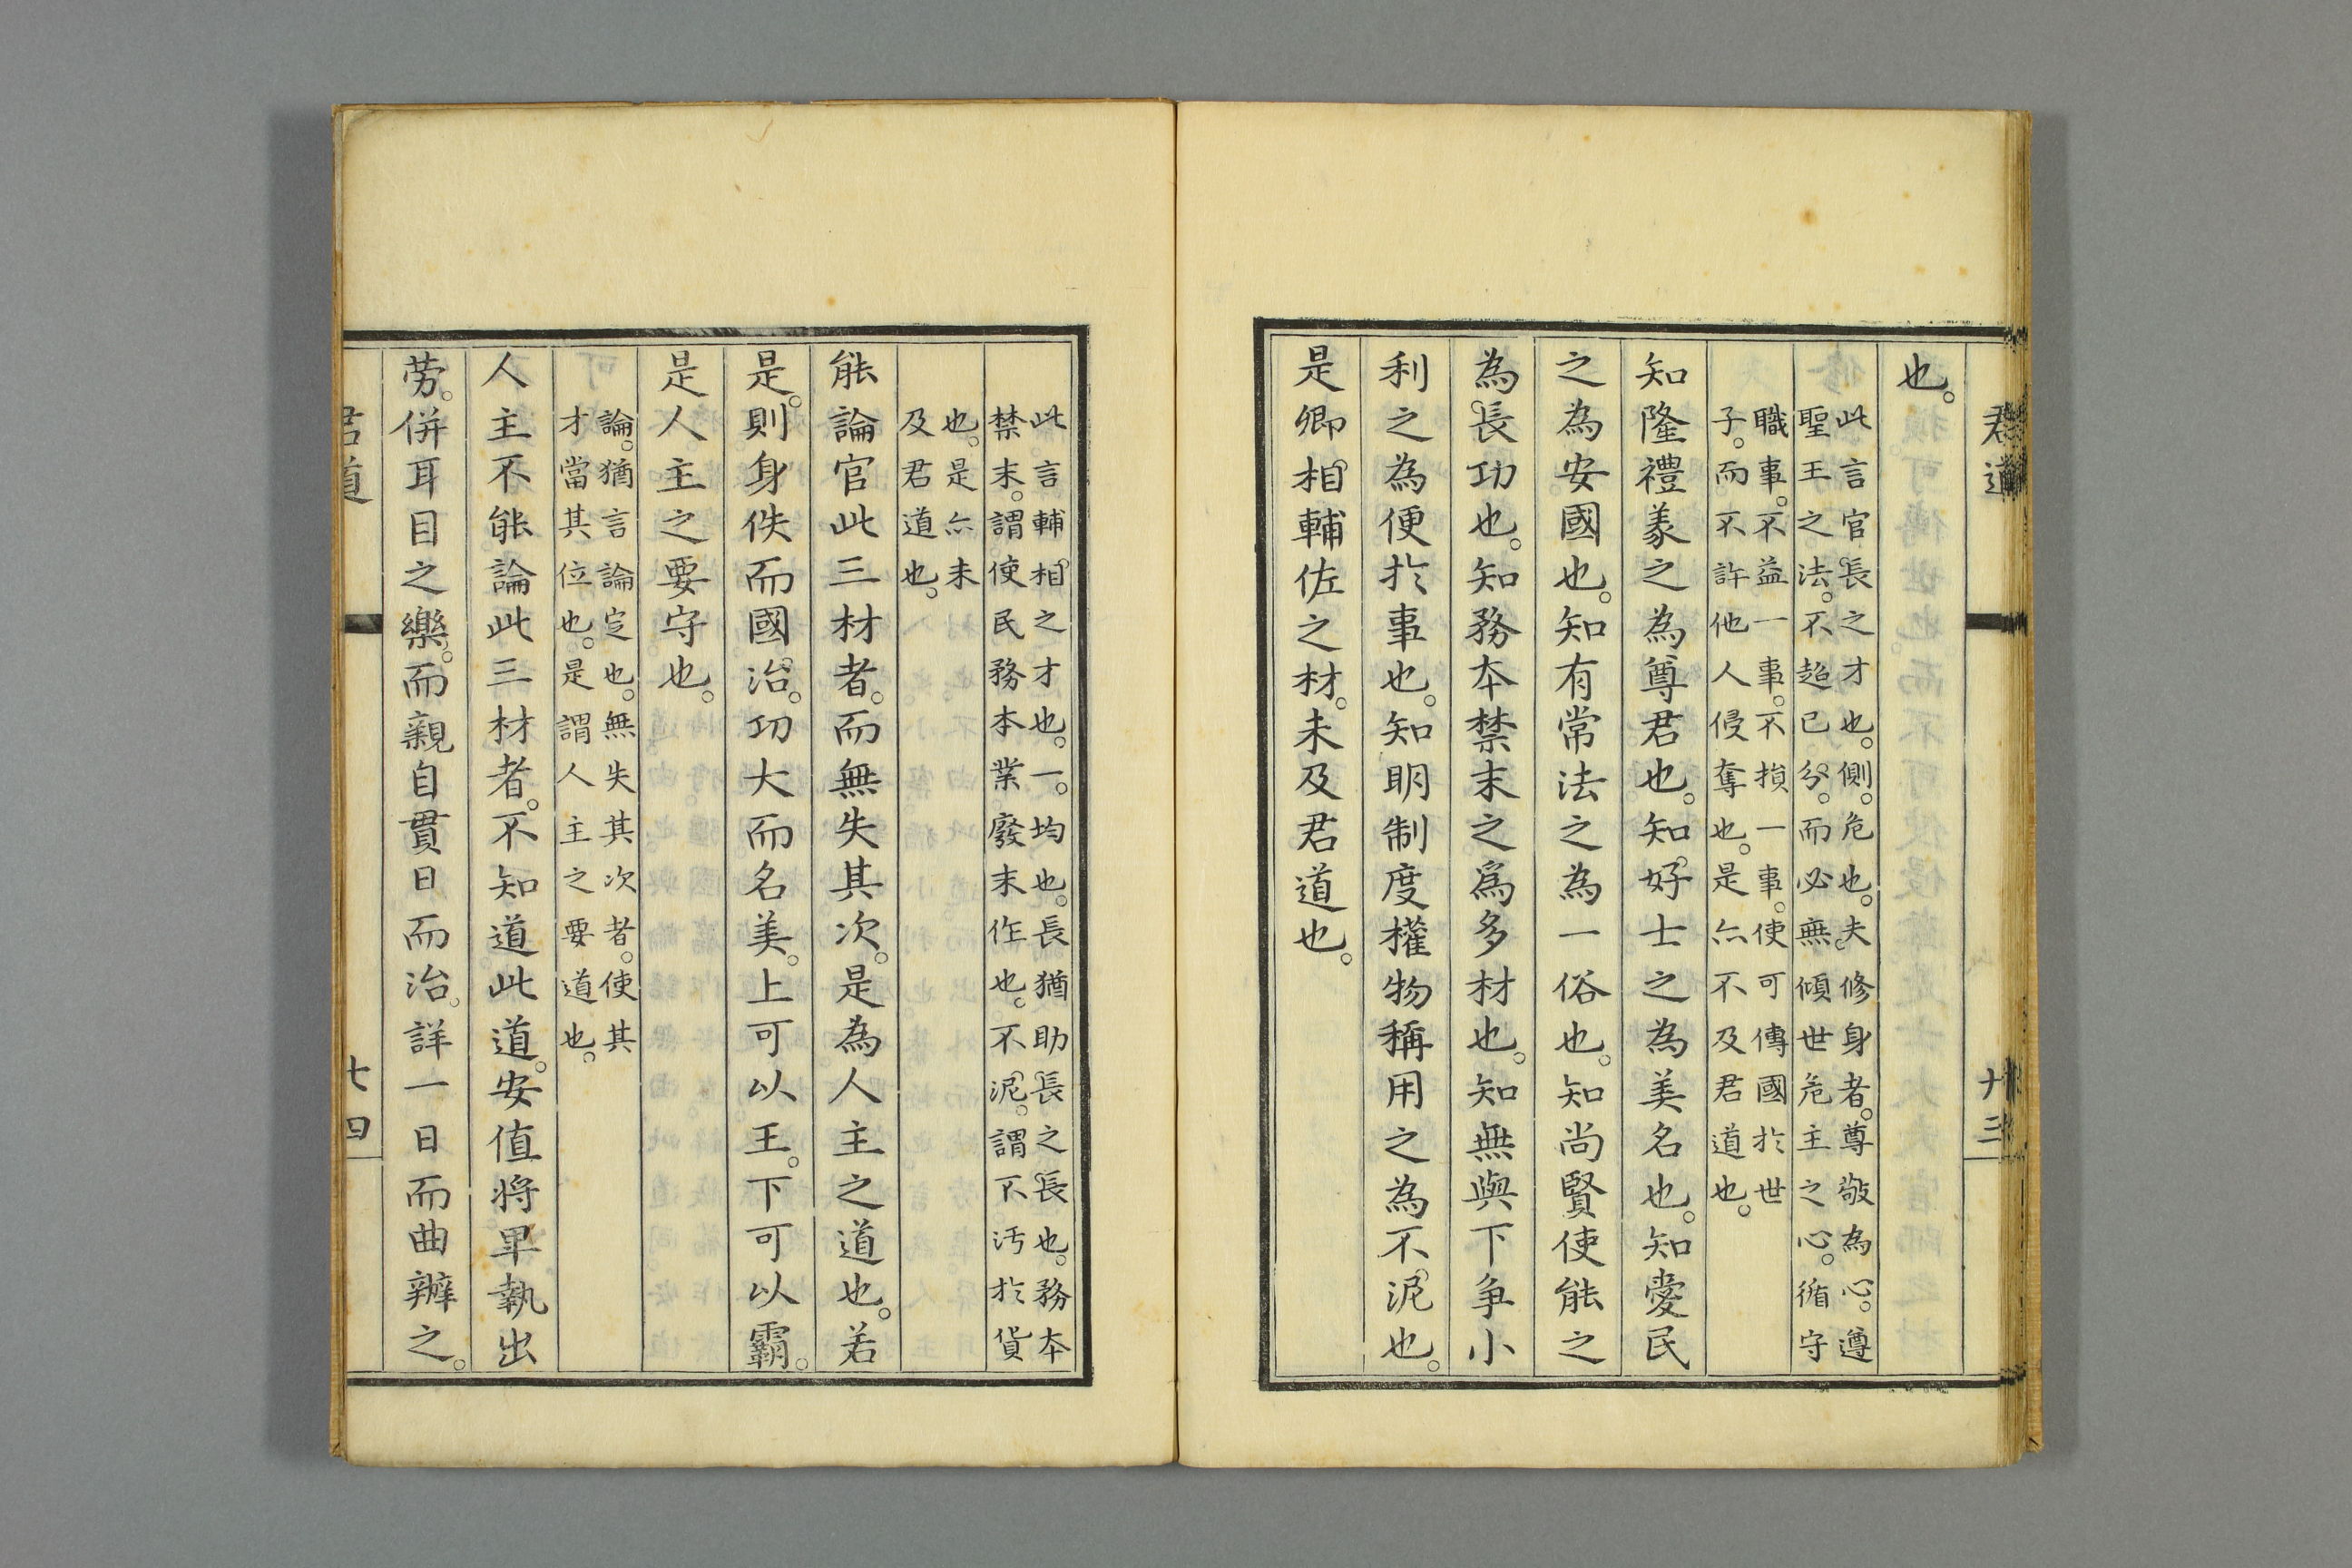 君道
十三
也。
此言官長之才也。側。危也。夫修身者。尊敬為心。遵
聖王之法。不趍己分。而必無傾世危主之心。循守
職事。不益一事。不損一事。使可傳國於世
子。而不許他人侵奪也。是亦不及君道也。
知隆禮義之為尊君也。知好士之為美名也。知愛民
之為安國也。知有常法之為一俗也。知尚賢使能之
為長功也。知務夲禁末之爲多材也。知無與下争小
利之為便扵事也。知明制度權物稱用之為不泥也。
是卿相輔佐之材。未及君道也。
此言輔相之才也。一。均也。長猶助長之長也。務夲
禁末。謂使民務本業廢末作也。不泥。謂不汚於貨
也。是亦未
及君道也。
能論官此三材者。而無失其次。是為人主之道也。若
是。則身佚而國治。功大而名美。上可以王。下可以霸。
是人主之要守也。
論。猶言論定也。無失其次者。使其
才當其位也。是謂人主之要道也。
人主不能論此三材者。不知道此道。安值将卑執出
劳。併耳目之樂。而親自貫日而治。詳一日而曲辨之。
君道
七四